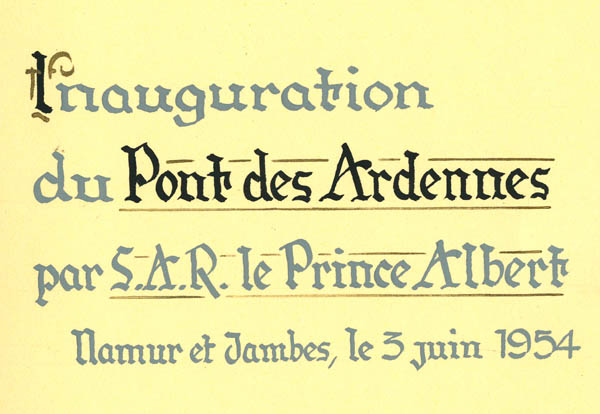 Inauguration
du Pont des Ardennes
par S.A.R. le Prince Albert
Namur et Jambes, le 3 juin 1954